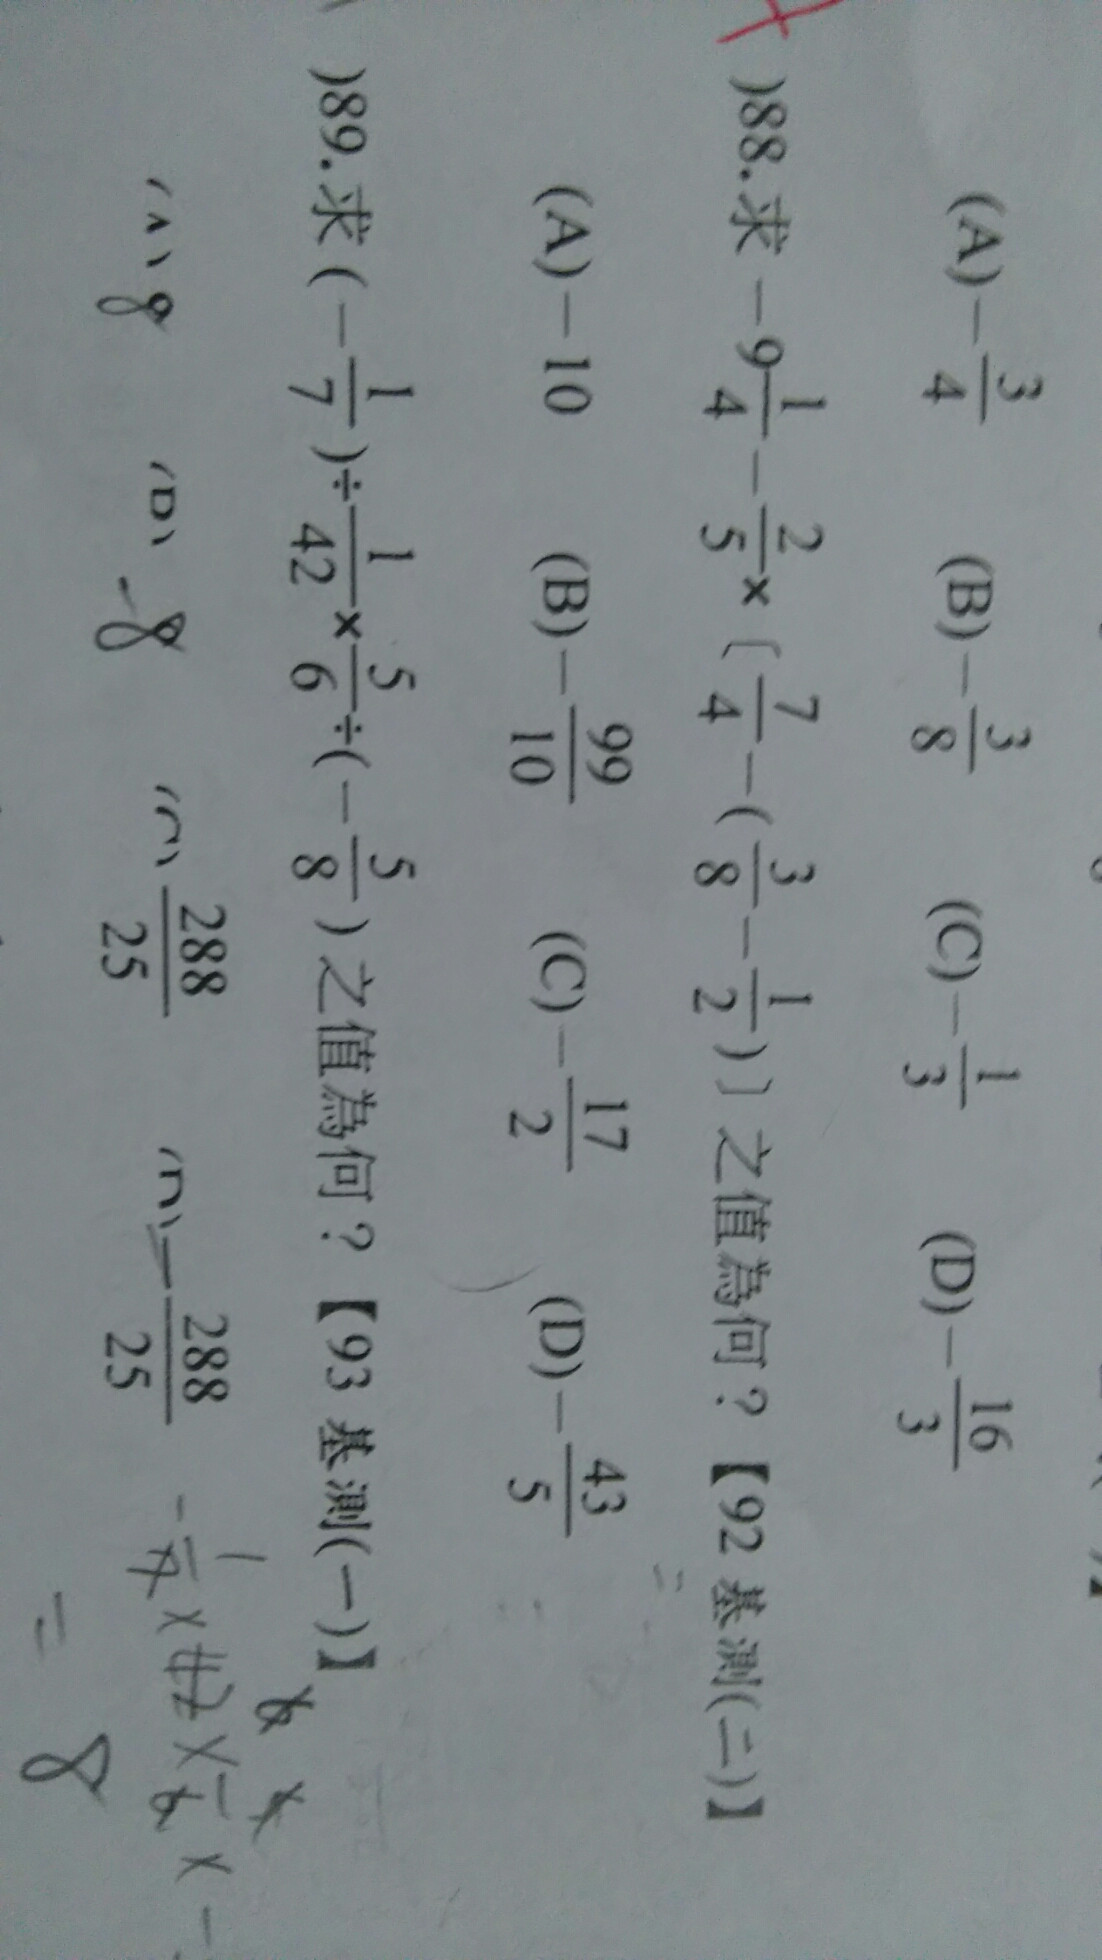 (A)−3/4 (B)−3/8 (C)−1/3 (D)−16/3
)88.求 −9 1/4 − 2/5 × 〔 7/4 −( 3/8 − 1/2 )〕之值為何？【92 基測(二)】
(A)−10 (B)−99/10 (C)−17/2 (D)−43/5
)89.求(− 1/7 )÷ 1/42 × 5/6 ÷(− 5/8 )之值為何？【93 基測(一)】
(A) 8 (B) −8 (C) 288/25 (D)− 288/25
= 8